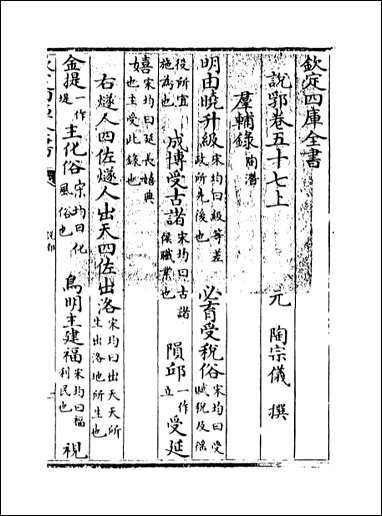 欽定四庫全書
說郛卷五十七上
元 陶宗儀 撰
羣輔錄 陶潛
明由曉升級 宋均曰級等差政所先後也 必育受稅俗 宋均曰受賦稅及徭
役所宜施為也 成博受古諸 宋均曰古諸侯職業也 隕邱 一作立 受延
嬉 宋均曰延長嬉典也主受此錄也
右燧人四佐燧人出天四佐出洛 宋均曰出天天所生出洛地所生也
金提 一作堤 主化俗 宋均曰化風俗也 烏明主建福 宋均曰福利民也 視